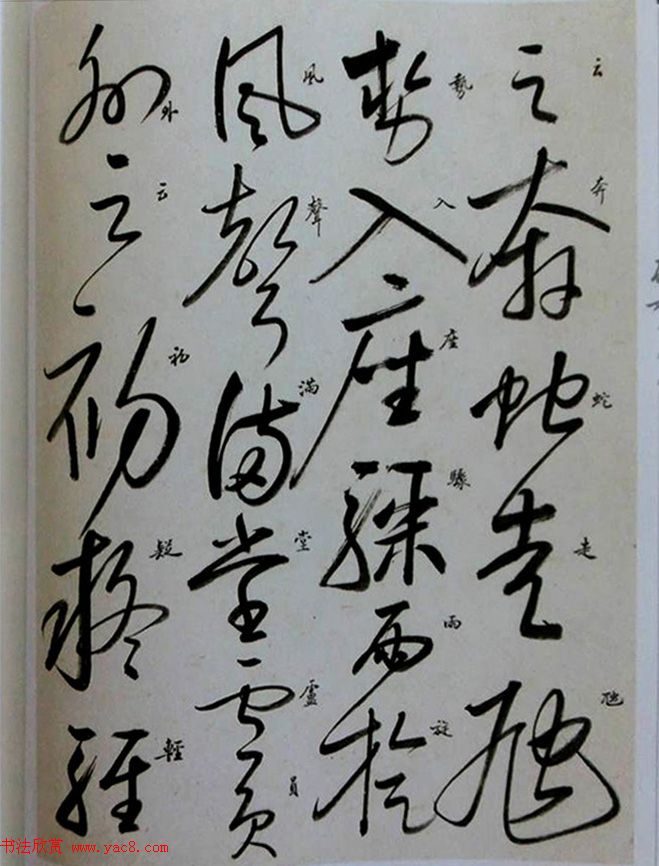 云奔蛇走虺
勢入座驟雨旋
風聲滿堂盧員
外云初疑輕
书法欣赏 www.yac8.com